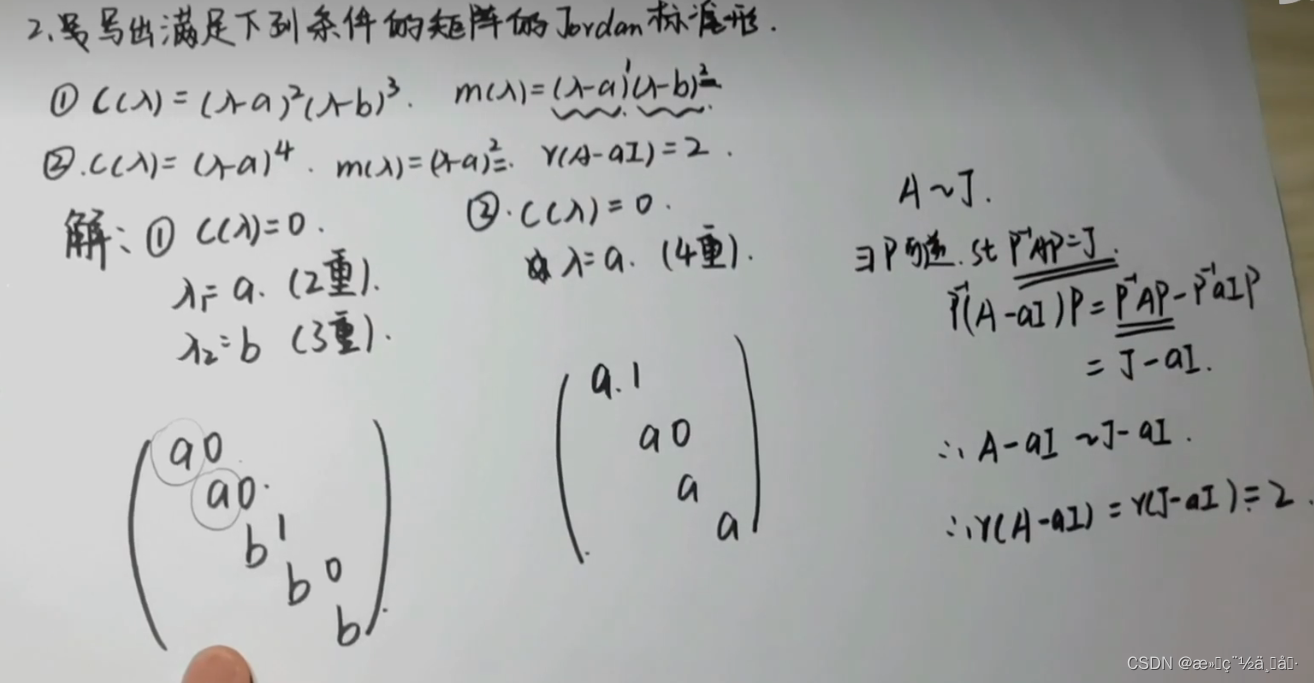 2、写出满足下列条件的矩阵的Jordan标准形.
① C(λ)=(λ-a)²(λ-b)³. m(λ)=(λ-a)¹(λ-b)²
②. C(λ)=(λ-a)⁴. m(λ)=(λ-a)². r(A-aI)=2.
解: ① C(λ)=0.
λ₁=a. (2重).
λ₂=b (3重).
a 0
a 0.
b 1
b 0
b
②. C(λ)=0.
λ=a. (4重).
a. 1
a 0
a
a
A~J.
∃P可逆. st P⁻¹AP=J.
P⁻¹(A-aI)P=P⁻¹AP-P⁻¹aIP
=J-aI.
∴A-aI~J-aI.
∴r(A-aI)=r(J-aI)=2.
CSDN @